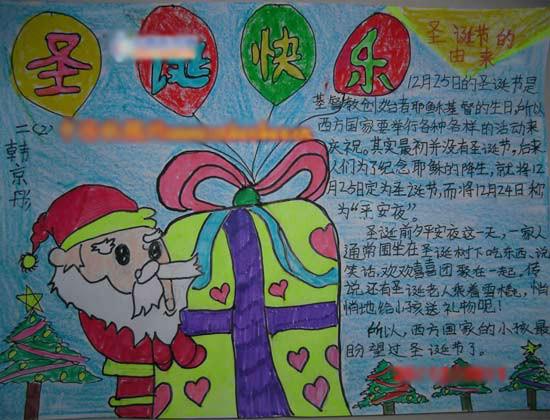 圣诞快乐
圣诞节的
由来
二(2)
韩京彤
12月25日的圣诞节是
基督教创始者耶稣基督的生日,所以
西方国家要举行各种各样的活动来
庆祝。其实最初并没有圣诞节,后来
人们为了纪念耶稣的降生,就将12
月25日定为圣诞节,而将12月24日称
为“平安夜”。
圣诞前夕平安夜这一天,一家人
通常围坐在圣诞树下吃东西、说
笑话,欢欢喜喜团聚在一起,传
说还有圣诞老人乘着雪橇,悄
悄地给小孩送礼物呢!
所以,西方国家的小孩最
盼望过圣诞节了。